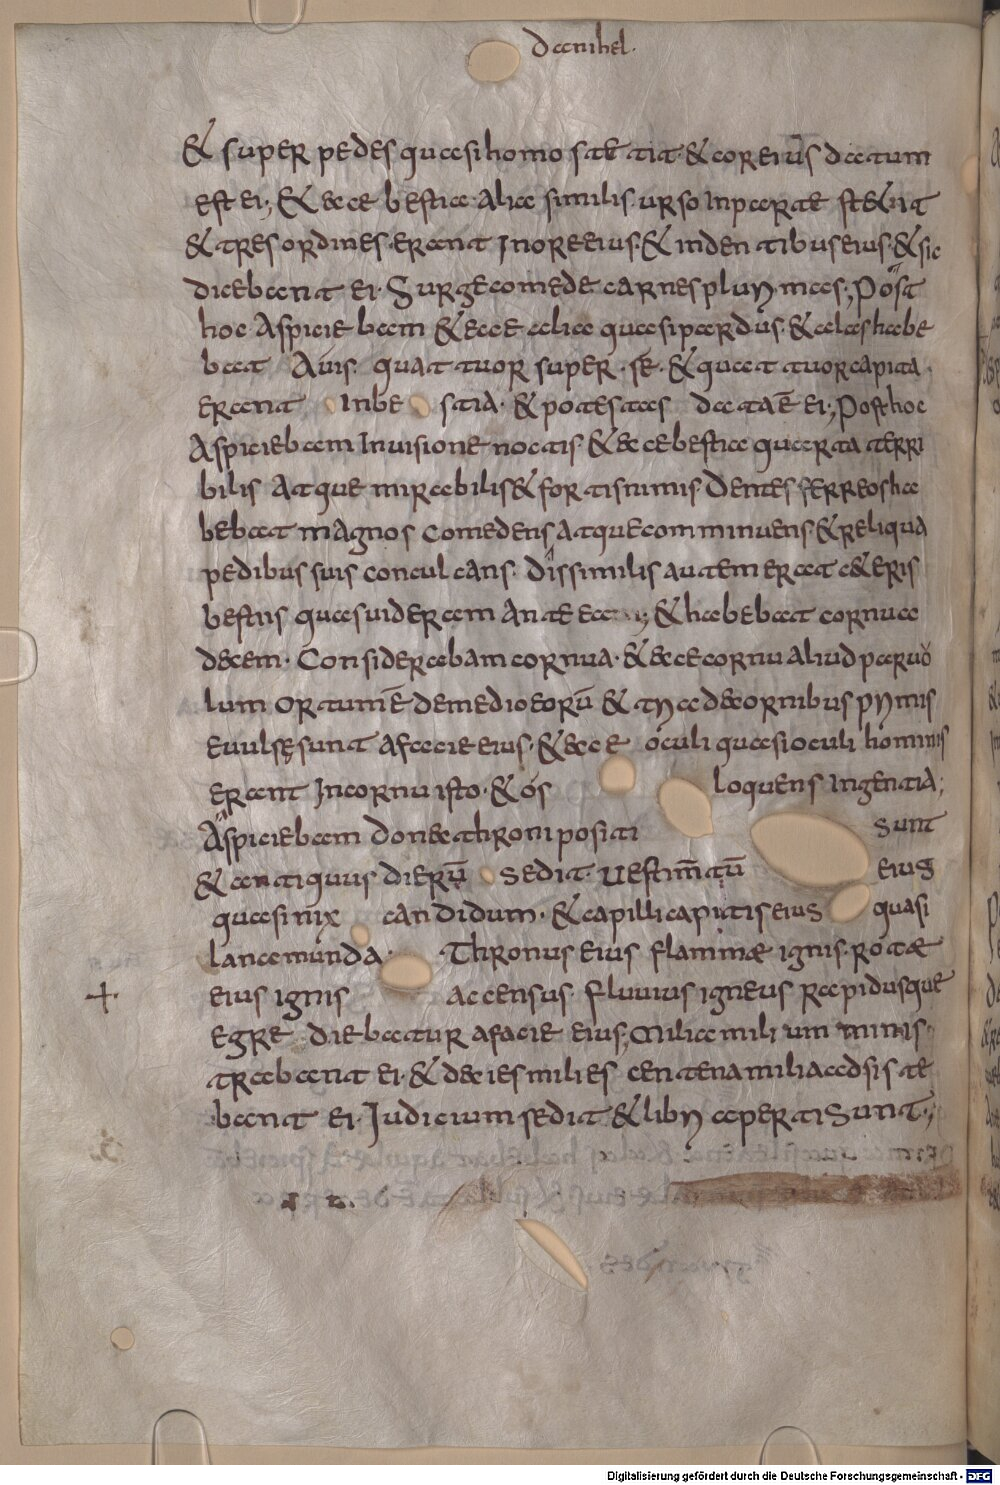 danihel·
& super pedes quasi homo stetit· & cor eiūs datum
est ei·; & ecce bestia· alia similis· urso in parte stetit
& tres ordines· erant in ore eius· & in dentibus eius· & sic
dicebant ei· Surge comede carnes plurimas·; Post
hoc· aspiciebam & ecce alia quasi pardus· & alas habe
bat Auis· quattuor super· se· & quattuor capita·
erant in be stia· & potestas data ē ei·; Post hoc
aspiciebam in uisione noctis· & ecce bestia quarta terri
bilis atque mirabilis & fortis nimis dentes ferreos ha
bebat magnos comedens atque comminuens· & reliqua
pedibus suis conculcans· dissimilis autem erat c&eris
bestiis quas uideram ante ea ·; & habebat cornua
decem· Considerabam cornua· & ecce cornu aliud paruo
lum ortum ē de medio eorū & tria de cornibus primis
euulsę sunt a facie eius· & ecce oculi quasi oculi hominis
erant in cornu isto· & os loquens ingentia·;
Aspiciebam donec throni positi sunt
& antiquus dierū sedit· uestimtū eius
quasi nix candidum· & capilli capitis eius quasi
lana munda· Thronus eius flammæ ignis· rotæ
eius ignis accensus· fluuius igneus rapidusque
egre diebatur a facie eius·; Milia milium minis
trabant ei· & decies milies centena milia adsiste
bant ei· Judicium sedit & libri aperti sunt·;
Digitalisierung gefördert durch die Deutsche Forschungsgemeinschaft - DFG